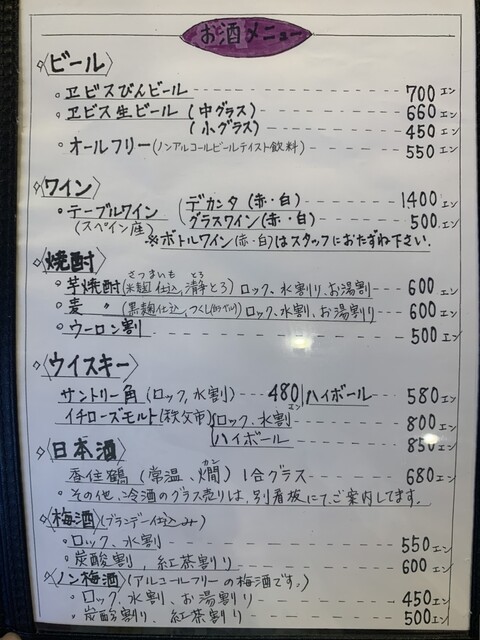 お酒メニュー
◇〈ビール〉
・ヱビスびんビール 700エン
・ヱビス生ビール (中グラス) 660エン
(小グラス) 450エン
・オールフリー(ノンアルコールビールテイスト飲料) 550エン
◇〈ワイン〉
・テーブルワイン デカンタ(赤・白) 1400エン
(スペイン産) グラスワイン(赤・白) 500エン
※ボトルワイン(赤・白)はスタッフにおたずね下さい.
◇〈焼酎〉
さつまいも とろ
・芋焼酎(米麹仕込, とろ)ロック、水割り、お湯割 600エン
・麦 〃 (黒麹仕込,つくし)ロック、水割、お湯割り 600エン
・ウーロン割 500エン
◇〈ウイスキー〉
サントリー角 (ロック、水割) 480エン ハイボール 580エン
イチローズモルト(秩父市) ロック、水割 800エン
ハイボール 850エン
◇〈日本酒〉
カン
香住鶴 (常温、燗) 1合グラス 680エン
・その他、冷酒のグラス売りは、別看板にてご案内してます。
◇〈梅酒〉(ブランデー仕込み)
・ロック、水割 550エン
・炭酸割, 紅茶割り 600エン
◇〈ノン梅酒〉(アルコールフリーの梅酒です。)
・ロック、水割、お湯割り 450エン
・炭酸割り、紅茶割り 500エン